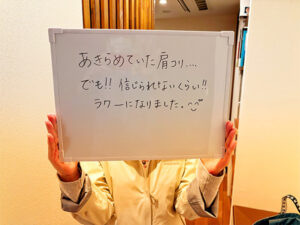 あきらめていた肩コリ....
でも!! 信じられないくらい!!
ラクーになりました。